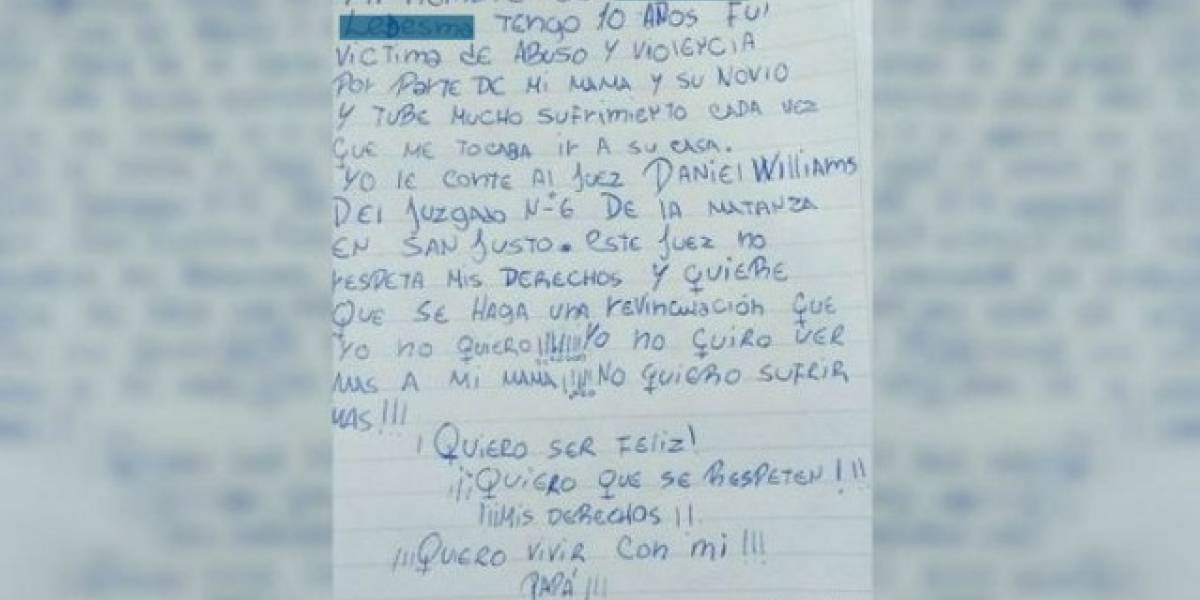 TENGO 10 AÑOS FUI
VICTIMA DE ABUSO Y VIOLENCIA
POR PARTE DE MI MAMA Y SU NOVIO
Y TUBE MUCHO SUFRIMIENTO CADA VEZ
QUE ME TOCABA IR A SU CASA.
YO LE CONTE AL JUEZ DANIEL WILLIAMS
DEL JUZGADO N-6 DE LA MATANZA
EN SAN JUSTO. ESTE JUEZ NO
RESPETA MIS DERECHOS Y QUIERE
QUE SE HAGA UNA REVINCULACIÓN QUE
YO NO QUIERO!!!!!! YO NO QUIRO VER
MAS A MI MAMA!!!! NO QUIERO SUFRIR
MAS!!!
¡QUIERO SER FELIZ!
¡¡¡QUIERO QUE SE RESPETEN!!!
¡¡¡MIS DERECHOS!!
¡¡¡QUERO VIVIR CON MI!!!
PAPÁ!!!